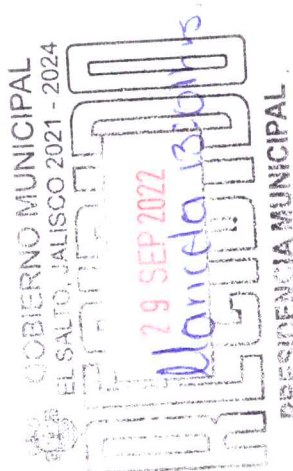 GOBIERNO MUNICIPAL
EL SALTO, JALISCO 2021 - 2024
RECIBIDO
29 SEP 2022
Maricela
PRESIDENCIA MUNICIPAL